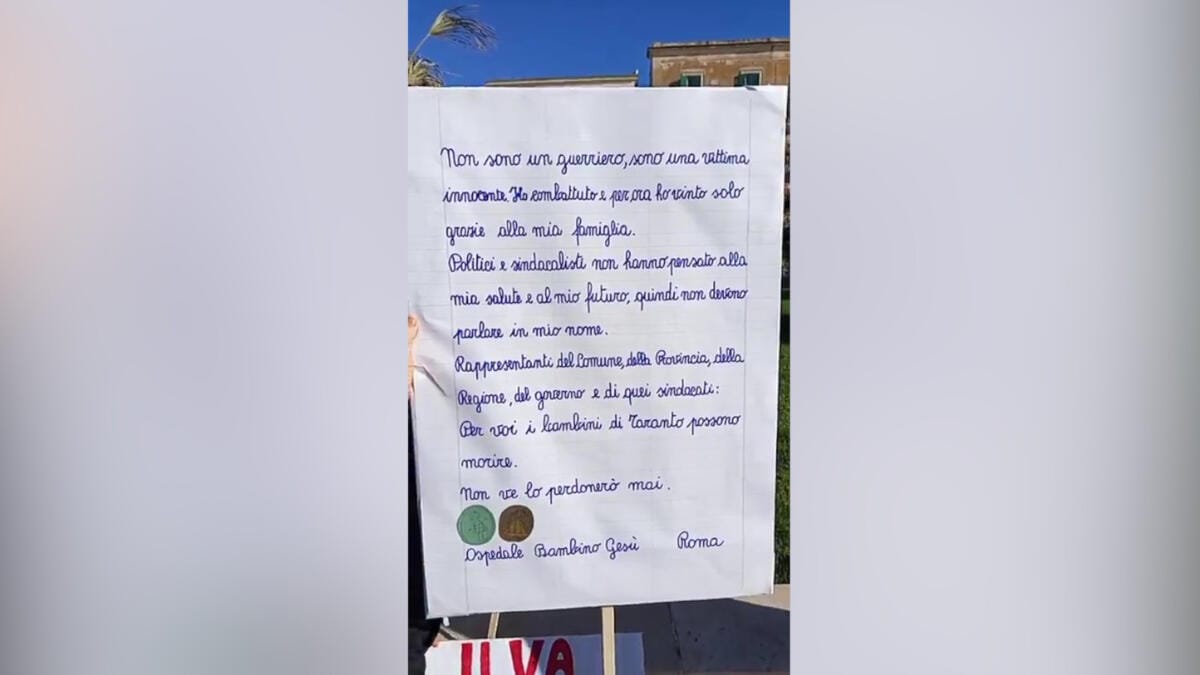 Non sono un guerriero, sono una vittima
innocente. Ho combattuto e per ora ho vinto solo
grazie alla mia famiglia.
Politici e sindacalisti non hanno pensato alla
mia salute e al mio futuro, quindi non devono
parlare in mio nome.
Rappresentanti del Comune, della Provincia, della
Regione, del governo e di quei sindacati:
Per voi i bambini di Taranto possono
morire.
Non ve lo perdonerò mai.
Ospedale Bambino Gesù Roma
ILVA